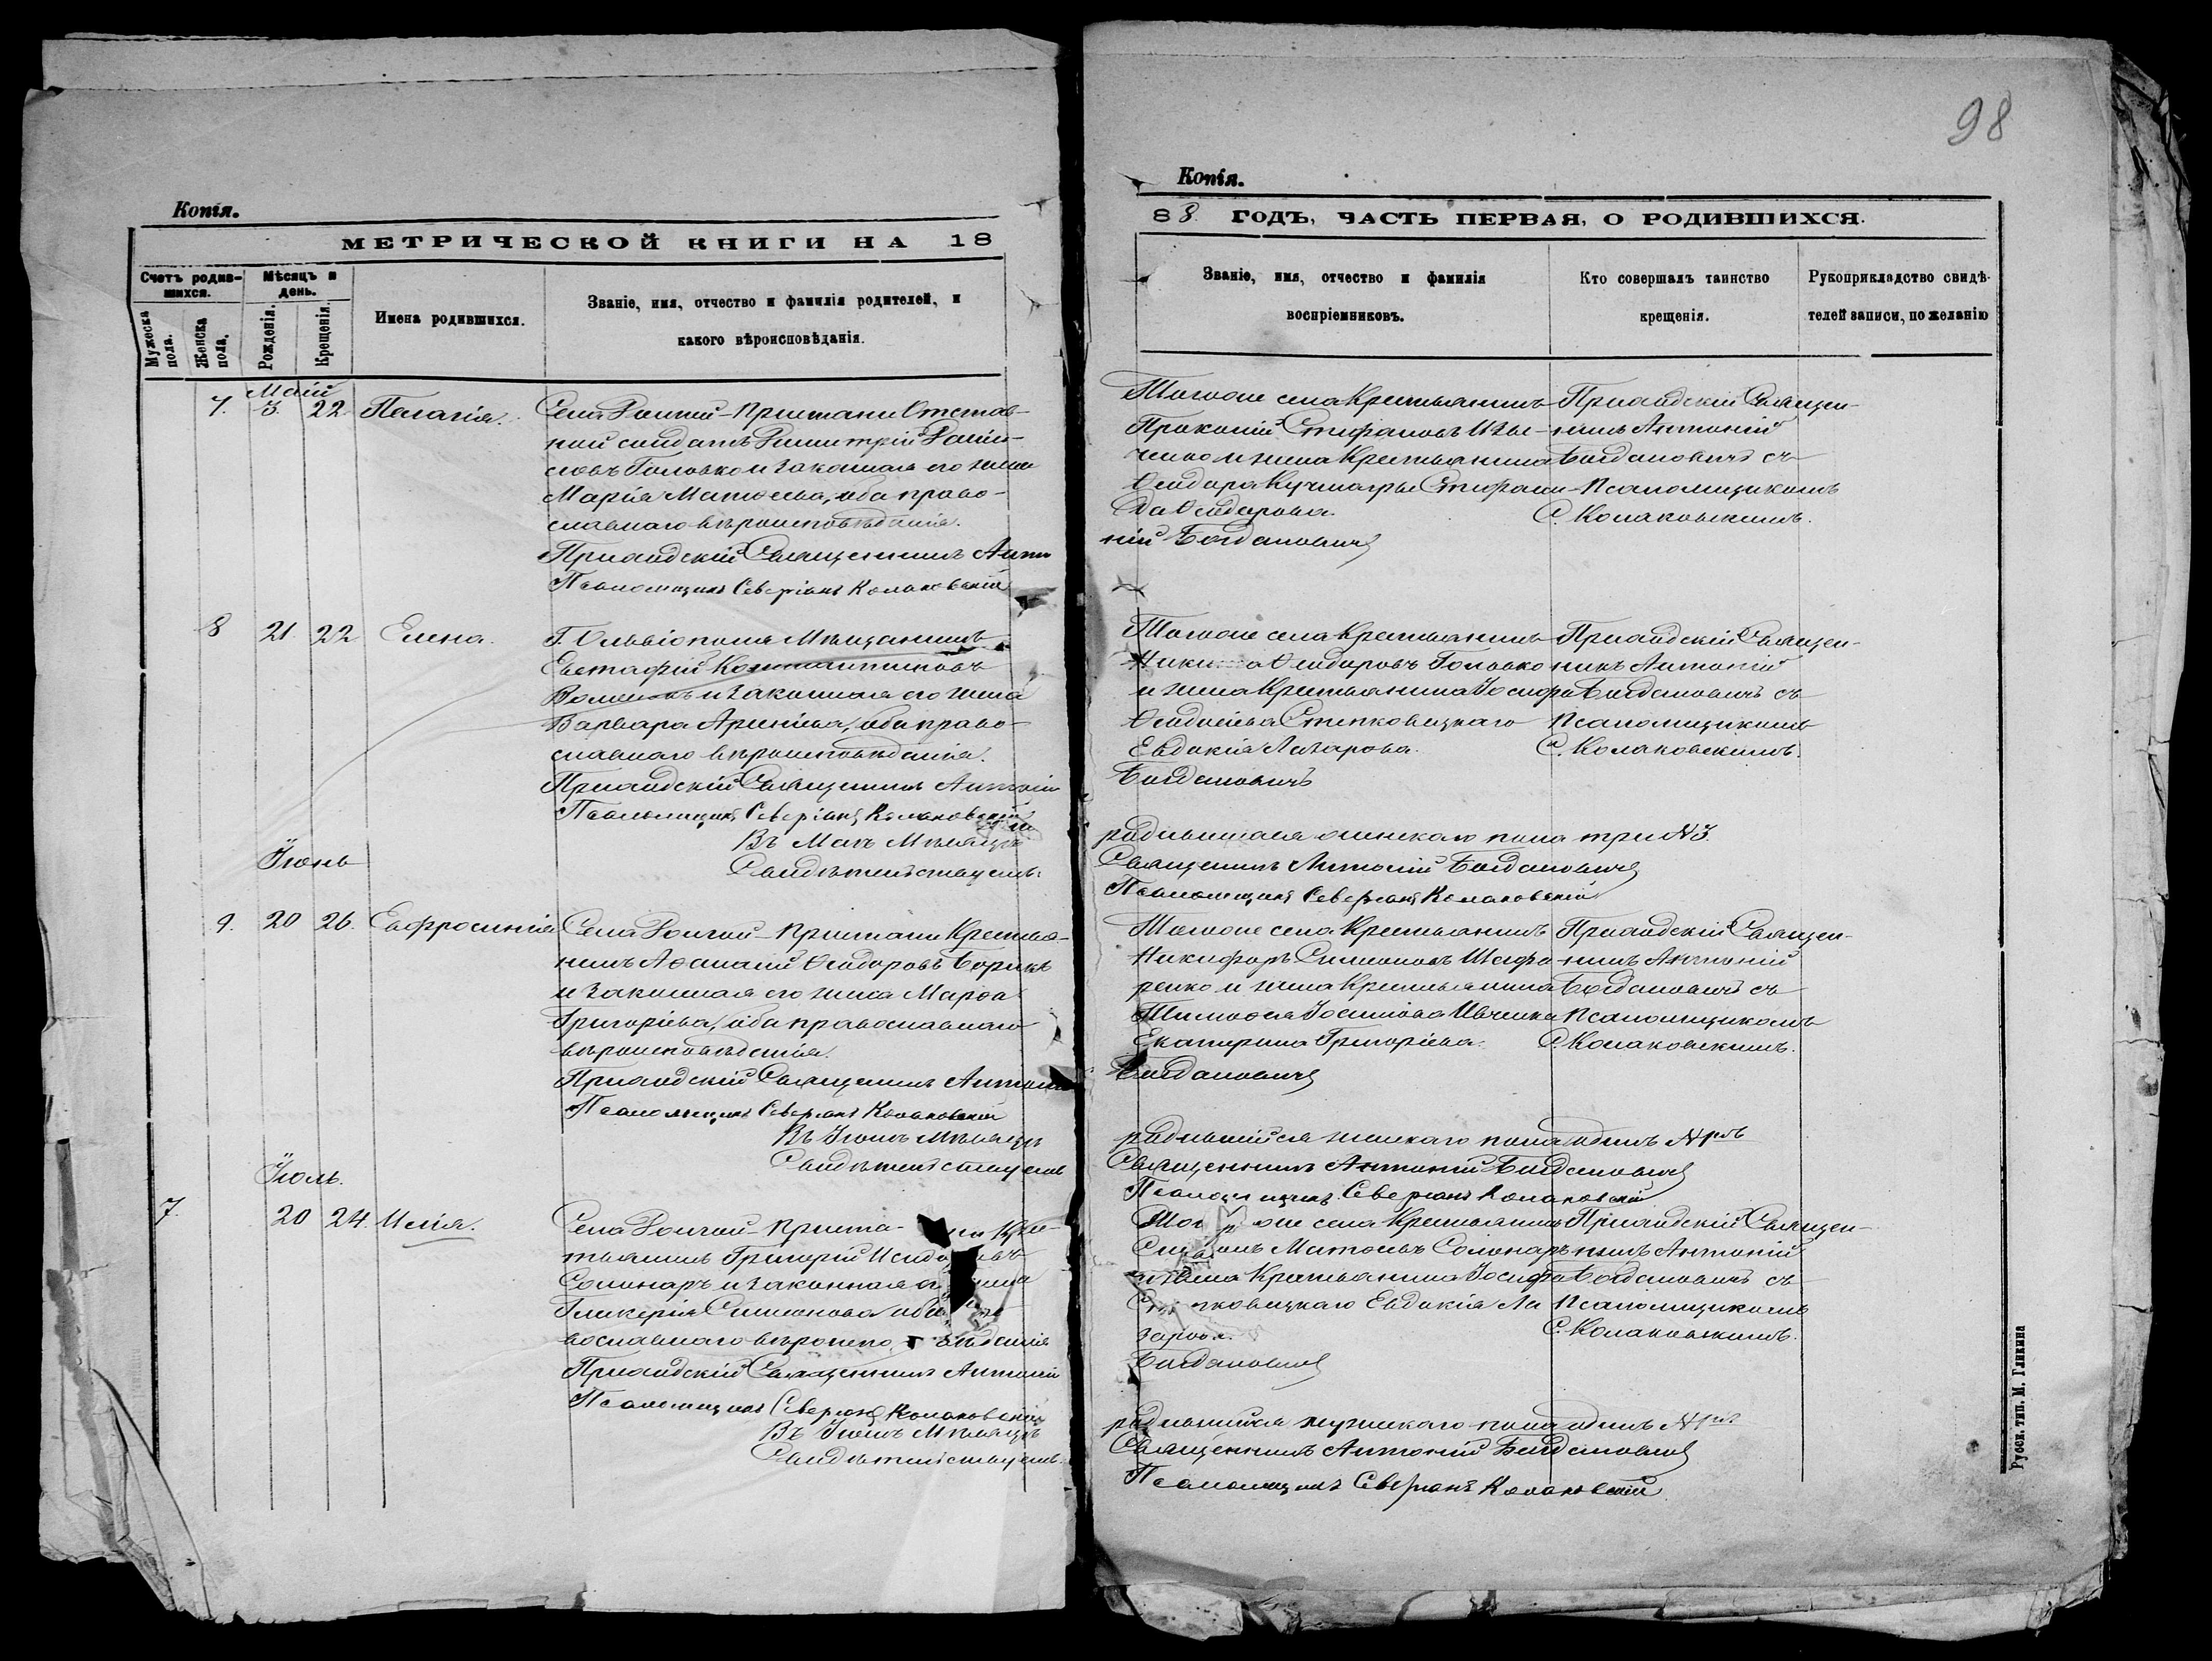 98
Копія.
МЕТРИЧЕСКОЙ КНИГИ НА 18
Счетъ родив-
шихся.
Мѣсяцъ и
день.
Мужеска
пола.
Женска
пола.
Рожденія.
Крещенія.
Имена родившихся.
Званіе, имя, отчество и фамилія родителей, и
какого вѣроисповѣданія.
Май
7. 3. 22 Пелагія.
Села Долгой-Пристани Отстав-
ной солдатъ Димитрій
Головко и законная его жена
Марія Матѳеева, оба право-
славнаго вѣроисповѣданія.
Приходскій Священникъ Анто
Псаломщикъ Северіанъ Колаковскій
8 21. 22 Елена.
Г. Ольвіополя Мѣщанинъ
Евстафій Константиновъ
и законная его жена
Варвара Арсеніева, оба право-
славнаго вѣроисповѣданія.
Приходскій Священникъ Антоній
Псаломщикъ Северіанъ Колаковскій
Въ Маѣ Мѣсяцѣ
Свидѣтельствуемъ
Іюнь
9. 20 26. Евфросинія
Села Долгой-Пристани Крестья-
нинъ Аѳанасій Ѳеодоровъ Борикъ
и законная его жена Марѳа
Григоріева, оба православнаго
вѣроисповѣданія.
Приходскій Священникъ Антоній
Псаломщикъ Северіанъ Колаковскій
Въ Іюнѣ Мѣсяцѣ
Свидѣтельствуемъ
Іюль.
7. 20 24. Илія.
Села Долгой-Приста- ни Кре-
стьянинъ Григорій
Солонаръ и законная его жена
Гликерія Симеонова оба
вославнаго вѣроиспо вѣданія
Приходскій Священникъ Антоній
Псаломщикъ Северіанъ Колаковскій
Въ Іюлѣ Мѣсяцѣ
Свидѣтельствуемъ.
Копія.
88. ГОДЪ, ЧАСТЬ ПЕРВАЯ, О РОДИВШИХСЯ.
Званіе, имя, отчество и фамилія
воспріемниковъ.
Кто совершалъ таинство
крещенія.
Рукоприкладство свидѣ-
телей записи, по желанію
Тогоже села Крестьянинъ
Прокопій Стефановъ
и жена Крестьянина
Ѳеодора Кучмагры Стефани-
да Ѳеодорова.
ній Богдановичъ
Приходскій Священ-
никъ Антоній
Богдановичъ съ
Псаломщикомъ
С. Колаковскимъ.
Тогоже села Крестьянинъ
Никита Ѳеодоровъ Головко
и жена Крестьянина Іосифа
Ѳеодосіева Степковецкаго
Евдокія Лазарова.
Богдановичъ
Приходскій Священ-
никъ Антоній
Богдановичъ съ
Псаломщикомъ
С. Колаковскимъ.
родившихся женскаго пола три №3.
Священникъ Антоній Богдановичъ
Псаломщикъ Северіанъ Колаковскій
Тогоже села Крестьянинъ
Никифоръ Симеоновъ
ренко и жена Крестьянина
Тимоѳея Іосифова Ивченка
Екатерина Григоріева.
Богдановичъ
Приходскій Священ-
никъ Антоній
Богдановичъ съ
Псаломщикомъ
С. Колаковскимъ.
родившійся женскаго пола одинъ №
Священникъ Антоній Богдановичъ
Псаломщикъ Северіанъ Колаковскій
Тогоже села Крестьянинъ
Матѳеевъ Солонаръ
и жена Крестьянина Іосифа
Евдокія Ла
зарова.
Богдановичъ
Приходскій Священ-
никъ Антоній
Богдановичъ съ
Псаломщикомъ
С. Колаковскимъ.
родившійся мужескаго пола одинъ №
Священникъ Антоній Богдановичъ
Псаломщикъ Северіанъ Колаковскій
Русск. тип. М. Гликина